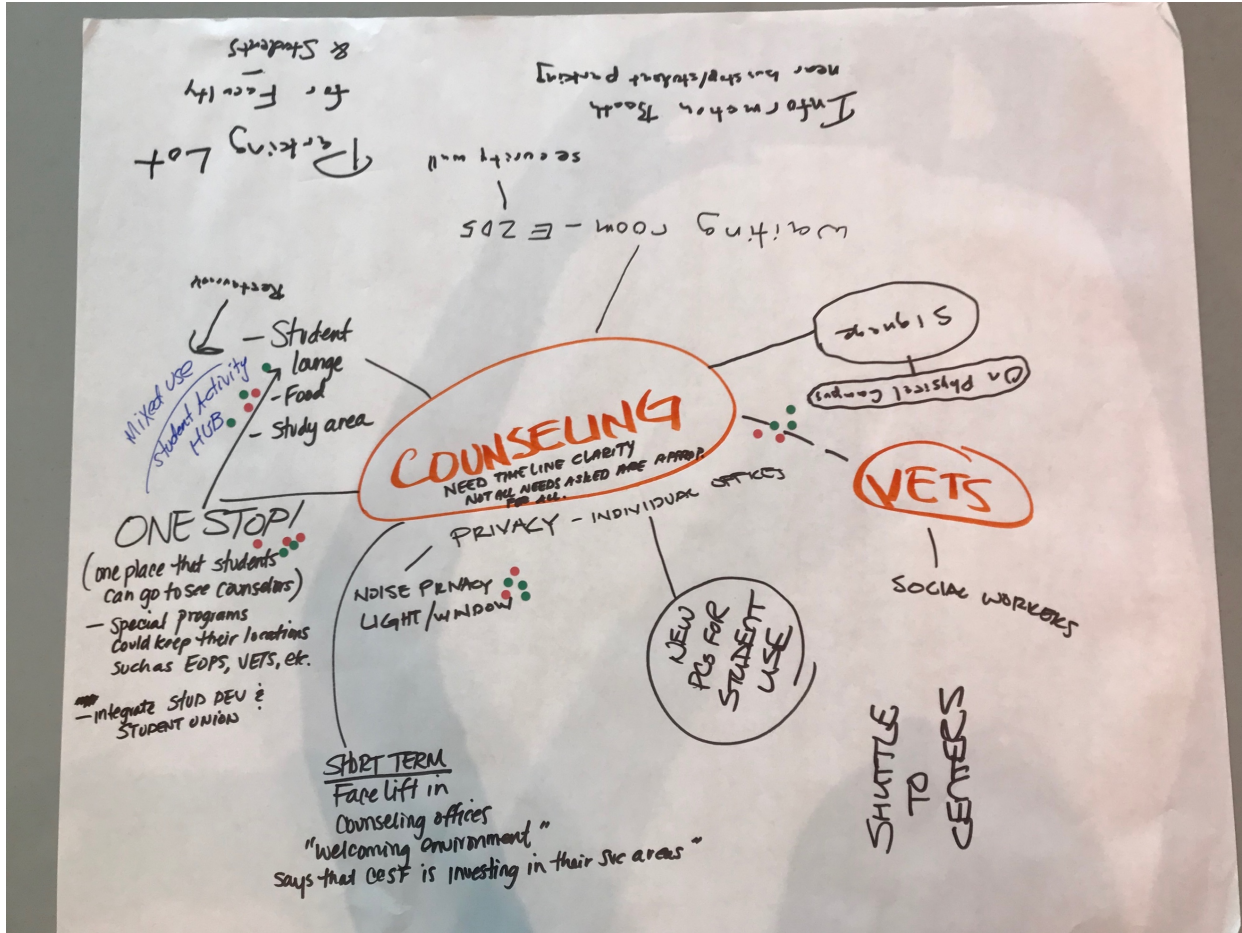 Parking Lot
for Faculty
& Students
Information Booth
near bus stop/student parking
waiting room - E205
security wall
Restaurant
- Student
lounge
- Food
- Study area
Mixed USE
Student Activity
HUB
Signage
On Physical Campus
COUNSELING
NEED TIMELINE CLARITY
NOT ALL NEEDS ASKED ARE APPROP.
FOR ALL.
VETS
SOCIAL WORKERS
PRIVACY - INDIVIDUAL OFFICES
NOISE PRIVACY
LIGHT/WINDOW
ONE STOP!
(one place that students
can go to see counselors)
- Special programs
could keep their locations
such as EOPS, VETS, etc.
- integrate STUD DEV &
STUDENT UNION
NEW
PCs FOR
STUDENT
USE
SHORT TERM
Face lift in
Counseling offices
"Welcoming environment"
says that CCSF is investing in their svc areas"
SHUTTLE
TO
CENTERS